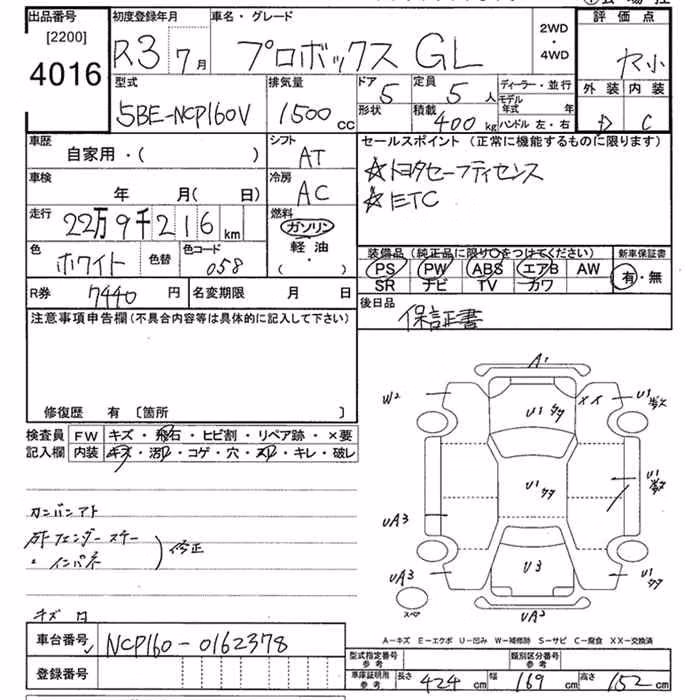 出品番号
[2200]
4016
初度登録年月
R3 7月
車名・グレード
プロボックス GL
2WD
・
4WD
評価点
ヤ小
外装 内装
D C
型式
5BE-NCP160V
排気量
1500 cc
ドア 5
形状
定員 5 人
積載 400 kg
ディーラー・並行
モデル年式 年
ハンドル 左・右
車歴
自家用・( )
シフト
AT
セールスポイント (正常に機能するものに限ります)
☆トヨタセーフティセンス
☆ETC
車検
年 月( 日)
冷房
AC
走行
22万9千216 km
燃料
ガソリン
軽油
( ・ )
色
ホワイト
色替
色コード
058
装備品 (純正品に限り○をつけてください)
PS PW ABS エアB AW
SR ナビ TV カワ
新車保証書
有・無
R券 7440 円
名変期限 月 日
後日品
保証書
注意事項申告欄(不具合内容等は具体的に記入して下さい)
修復歴 有 〔箇所 〕
検査員記入欄
FW キズ・飛石・ヒビ割・リペア跡・×要
内装 キズ・汚れ・コゲ・穴・スレ・キレ・破レ
カンバンアト
フェンダー ステー
インパネ
修正
キズ
A1
W2
U1
XX
U1
U1
U1
UA3
U3
UA3
U1
UA3
スペア
A-キズ E-エクボ U-凹み W-補修跡 S-サビ C-腐食 XX-交換済
車台番号
NCP160-0162378
登録番号
型式指定番号
参考
類別区分番号
参考
車庫証明用
参考
長さ 424 cm 幅 169 cm 高さ 152 cm